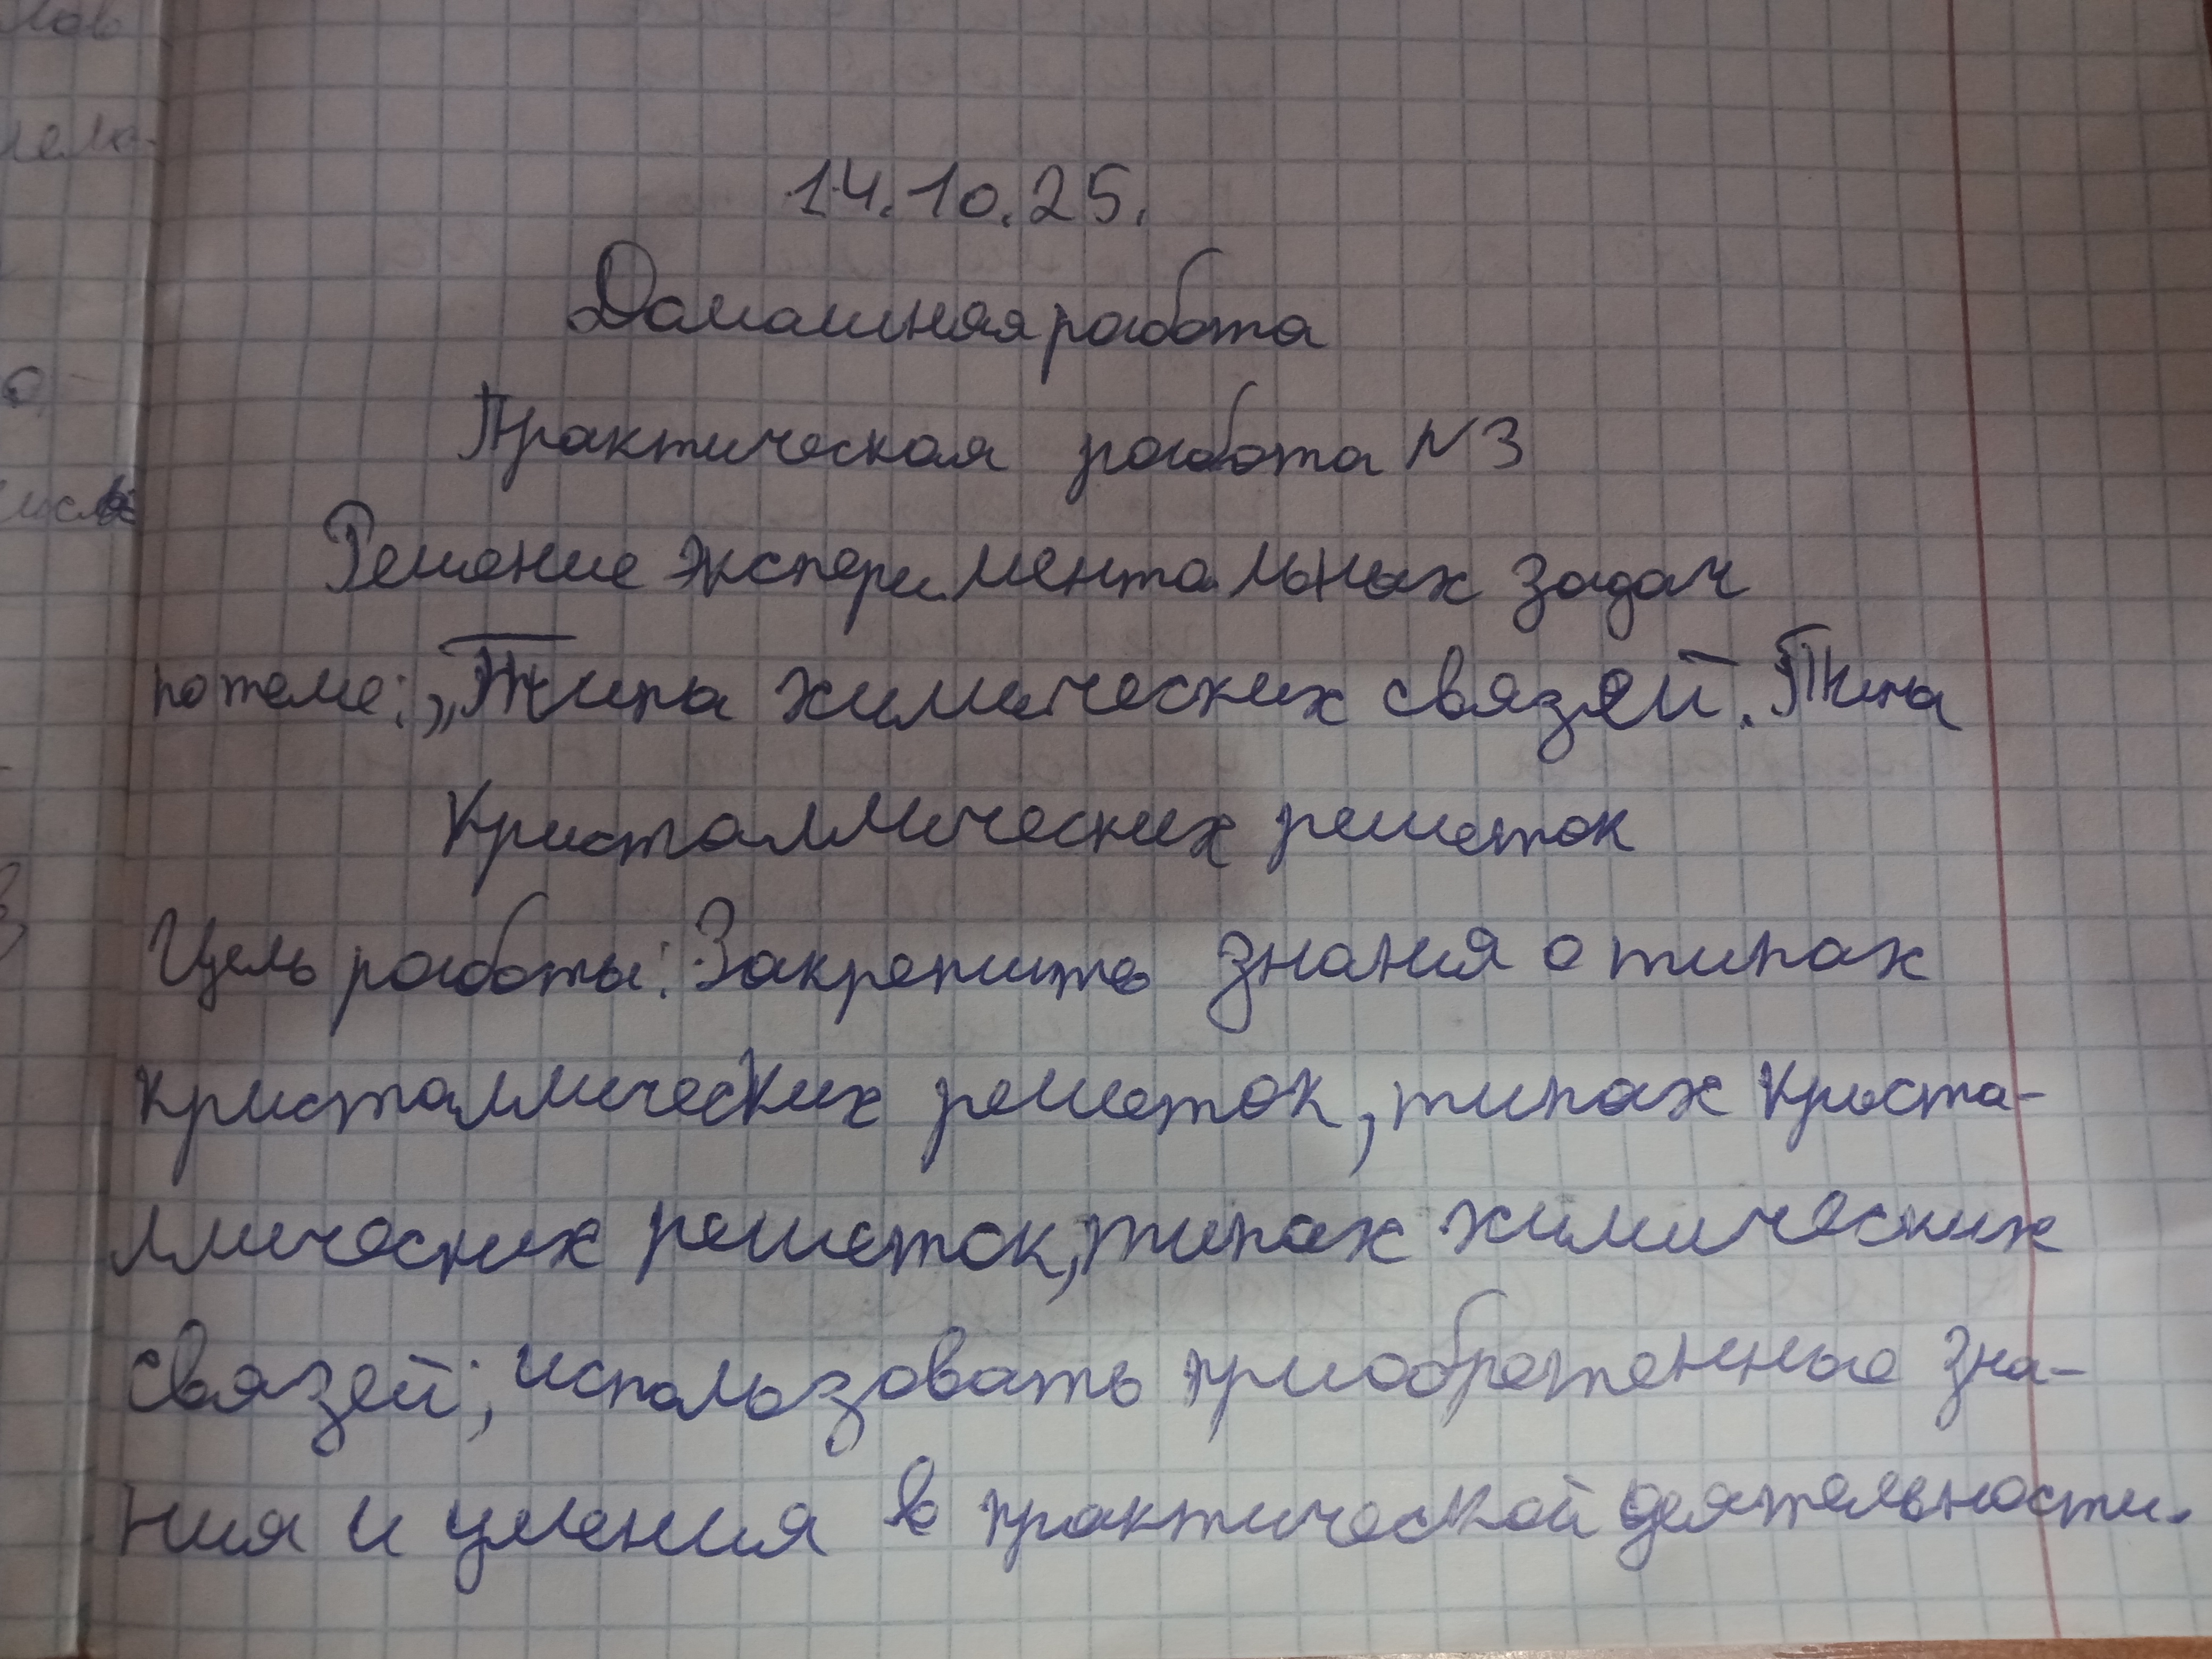 14.10.25.
Домашняя работа
Практическая работа N3
Решение экспериментальных задач
по теме: „Типы химических связей. Типы
Кристаллических решеток
Цель работы: Закрепить знания о типах
кристаллических решеток, типах криста-
ллических решеток, типах химических
связей; использовать приобретенные зна-
ния и умения в практической деятельности.